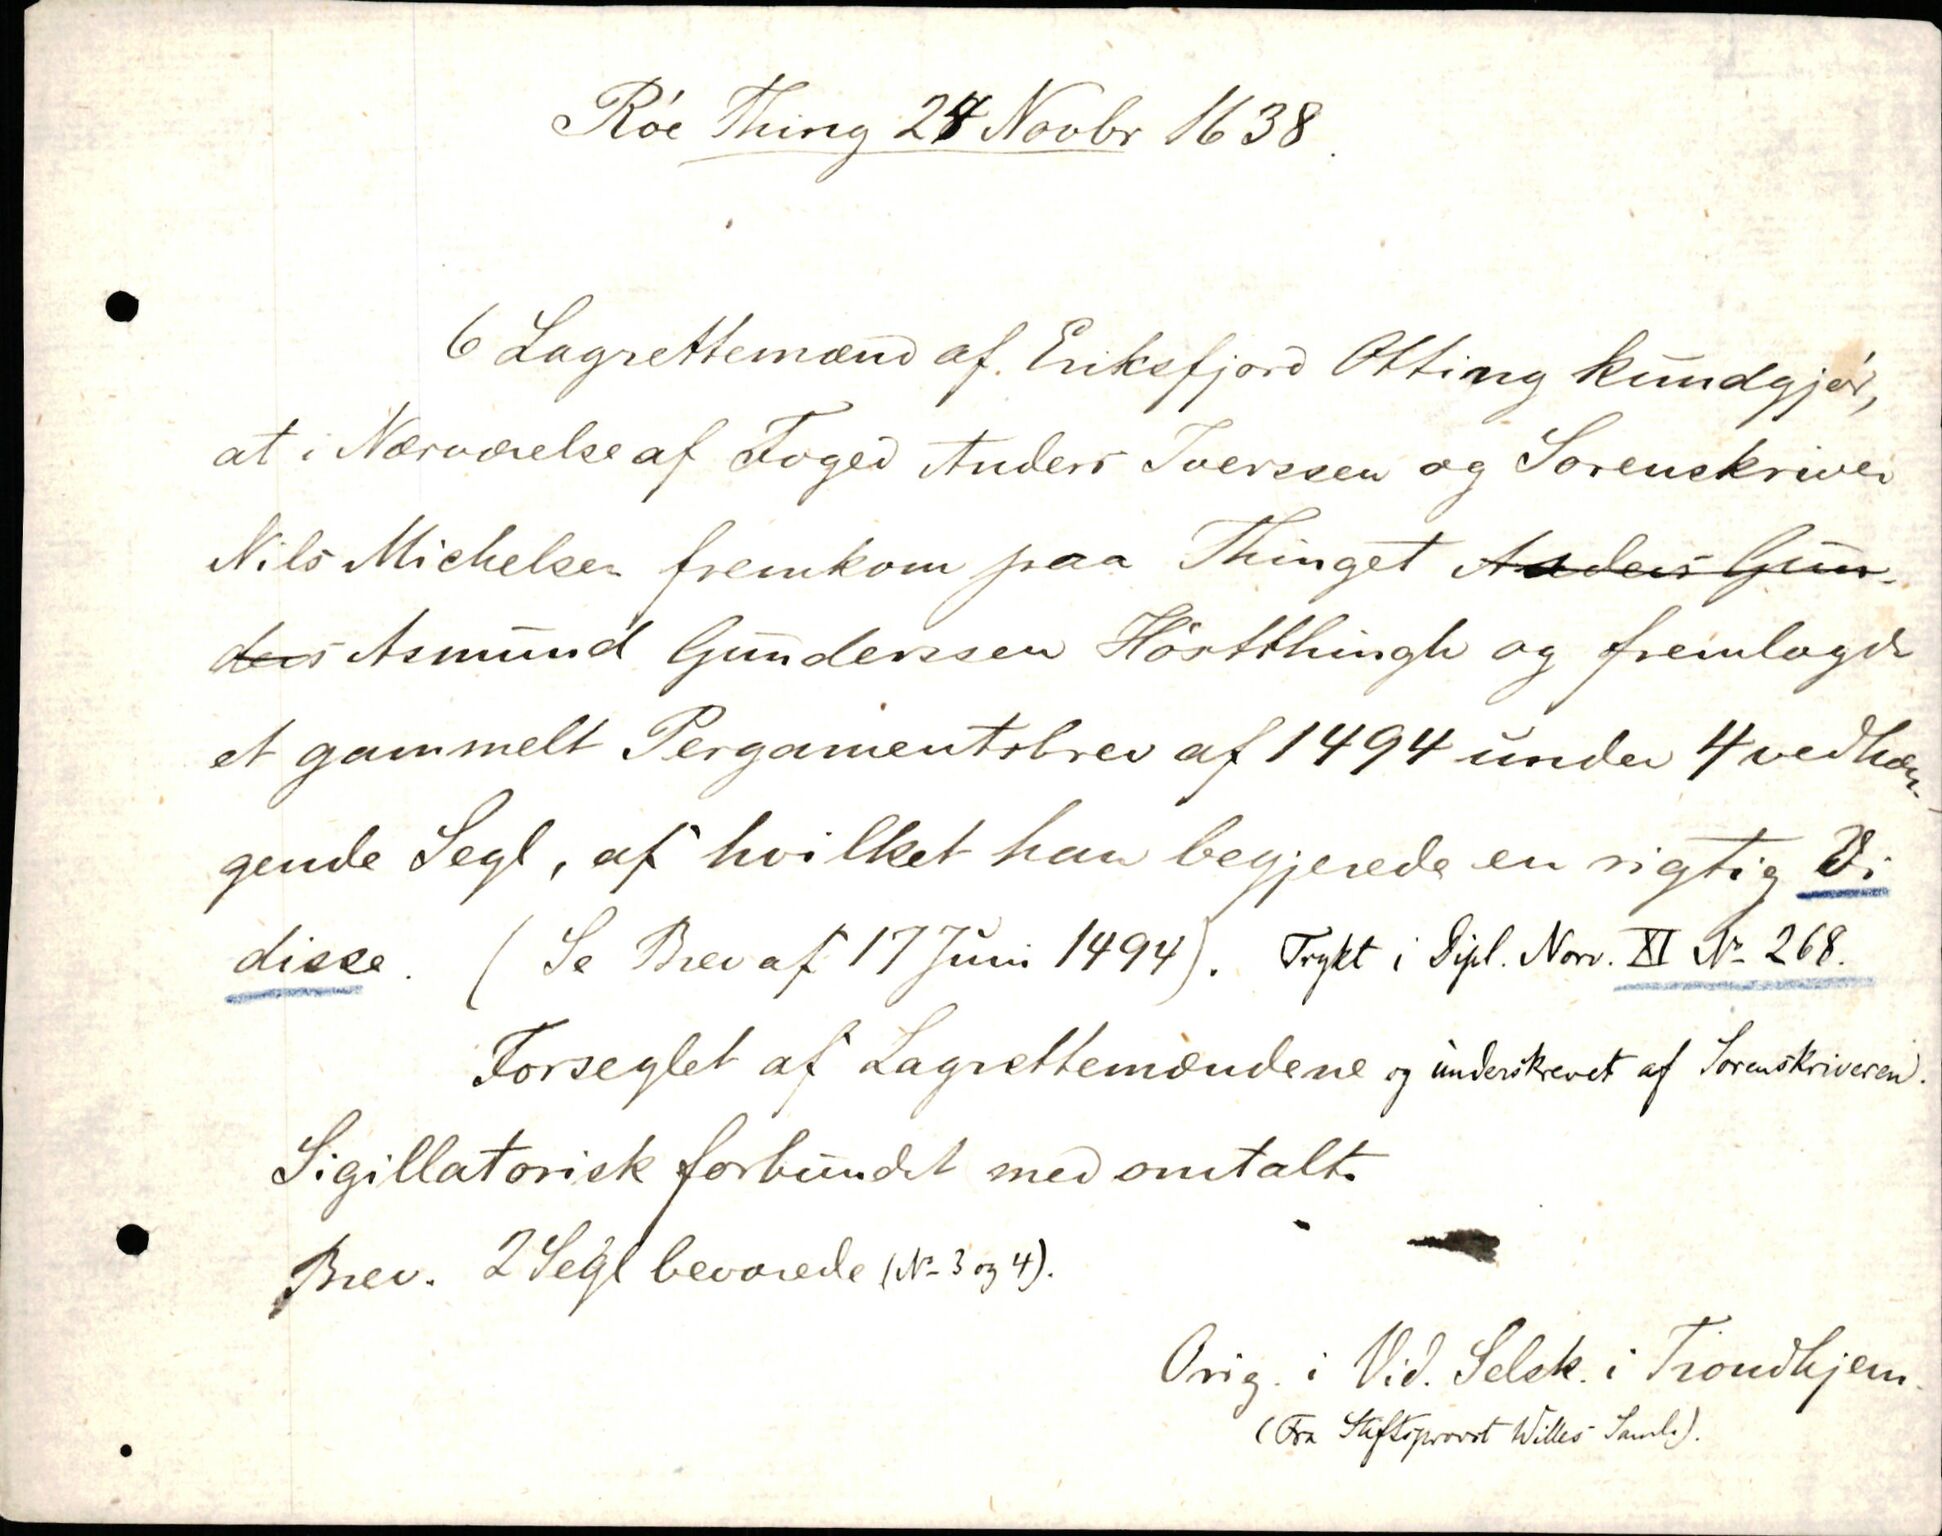 Róe Thing 24 Novbr 1638.
6 Lagrettemænd af Eriksfjord Otting kundgjør,
at i Nærværelse af Foged Anders Iverssen og Sorenskriver
Nils Michelsen fremkom paa Thinget Anders Gun-
ders Asmund Gunderssen Hóstthingh og fremlagde
et gammelt Pergamentsbrev af 1494 under 4 vedhæn-
gende Segl, af hvilket han begjerede en rigtig Vi
disse. (Se Brev af 17 Juni 1494). Trykt i Dipl. Norv. XI No 268.
Forseglet af Lagrettemændene og underskrevet af Sorenskriveren.
Sigillatorisk forbundet med omtalte
Brev. 2 Segl bevarede (No 3 og 4).
Orig. i Vid. Selsk. i Trondhjem.
(Fra Stiftsprovst Willes Saml.).